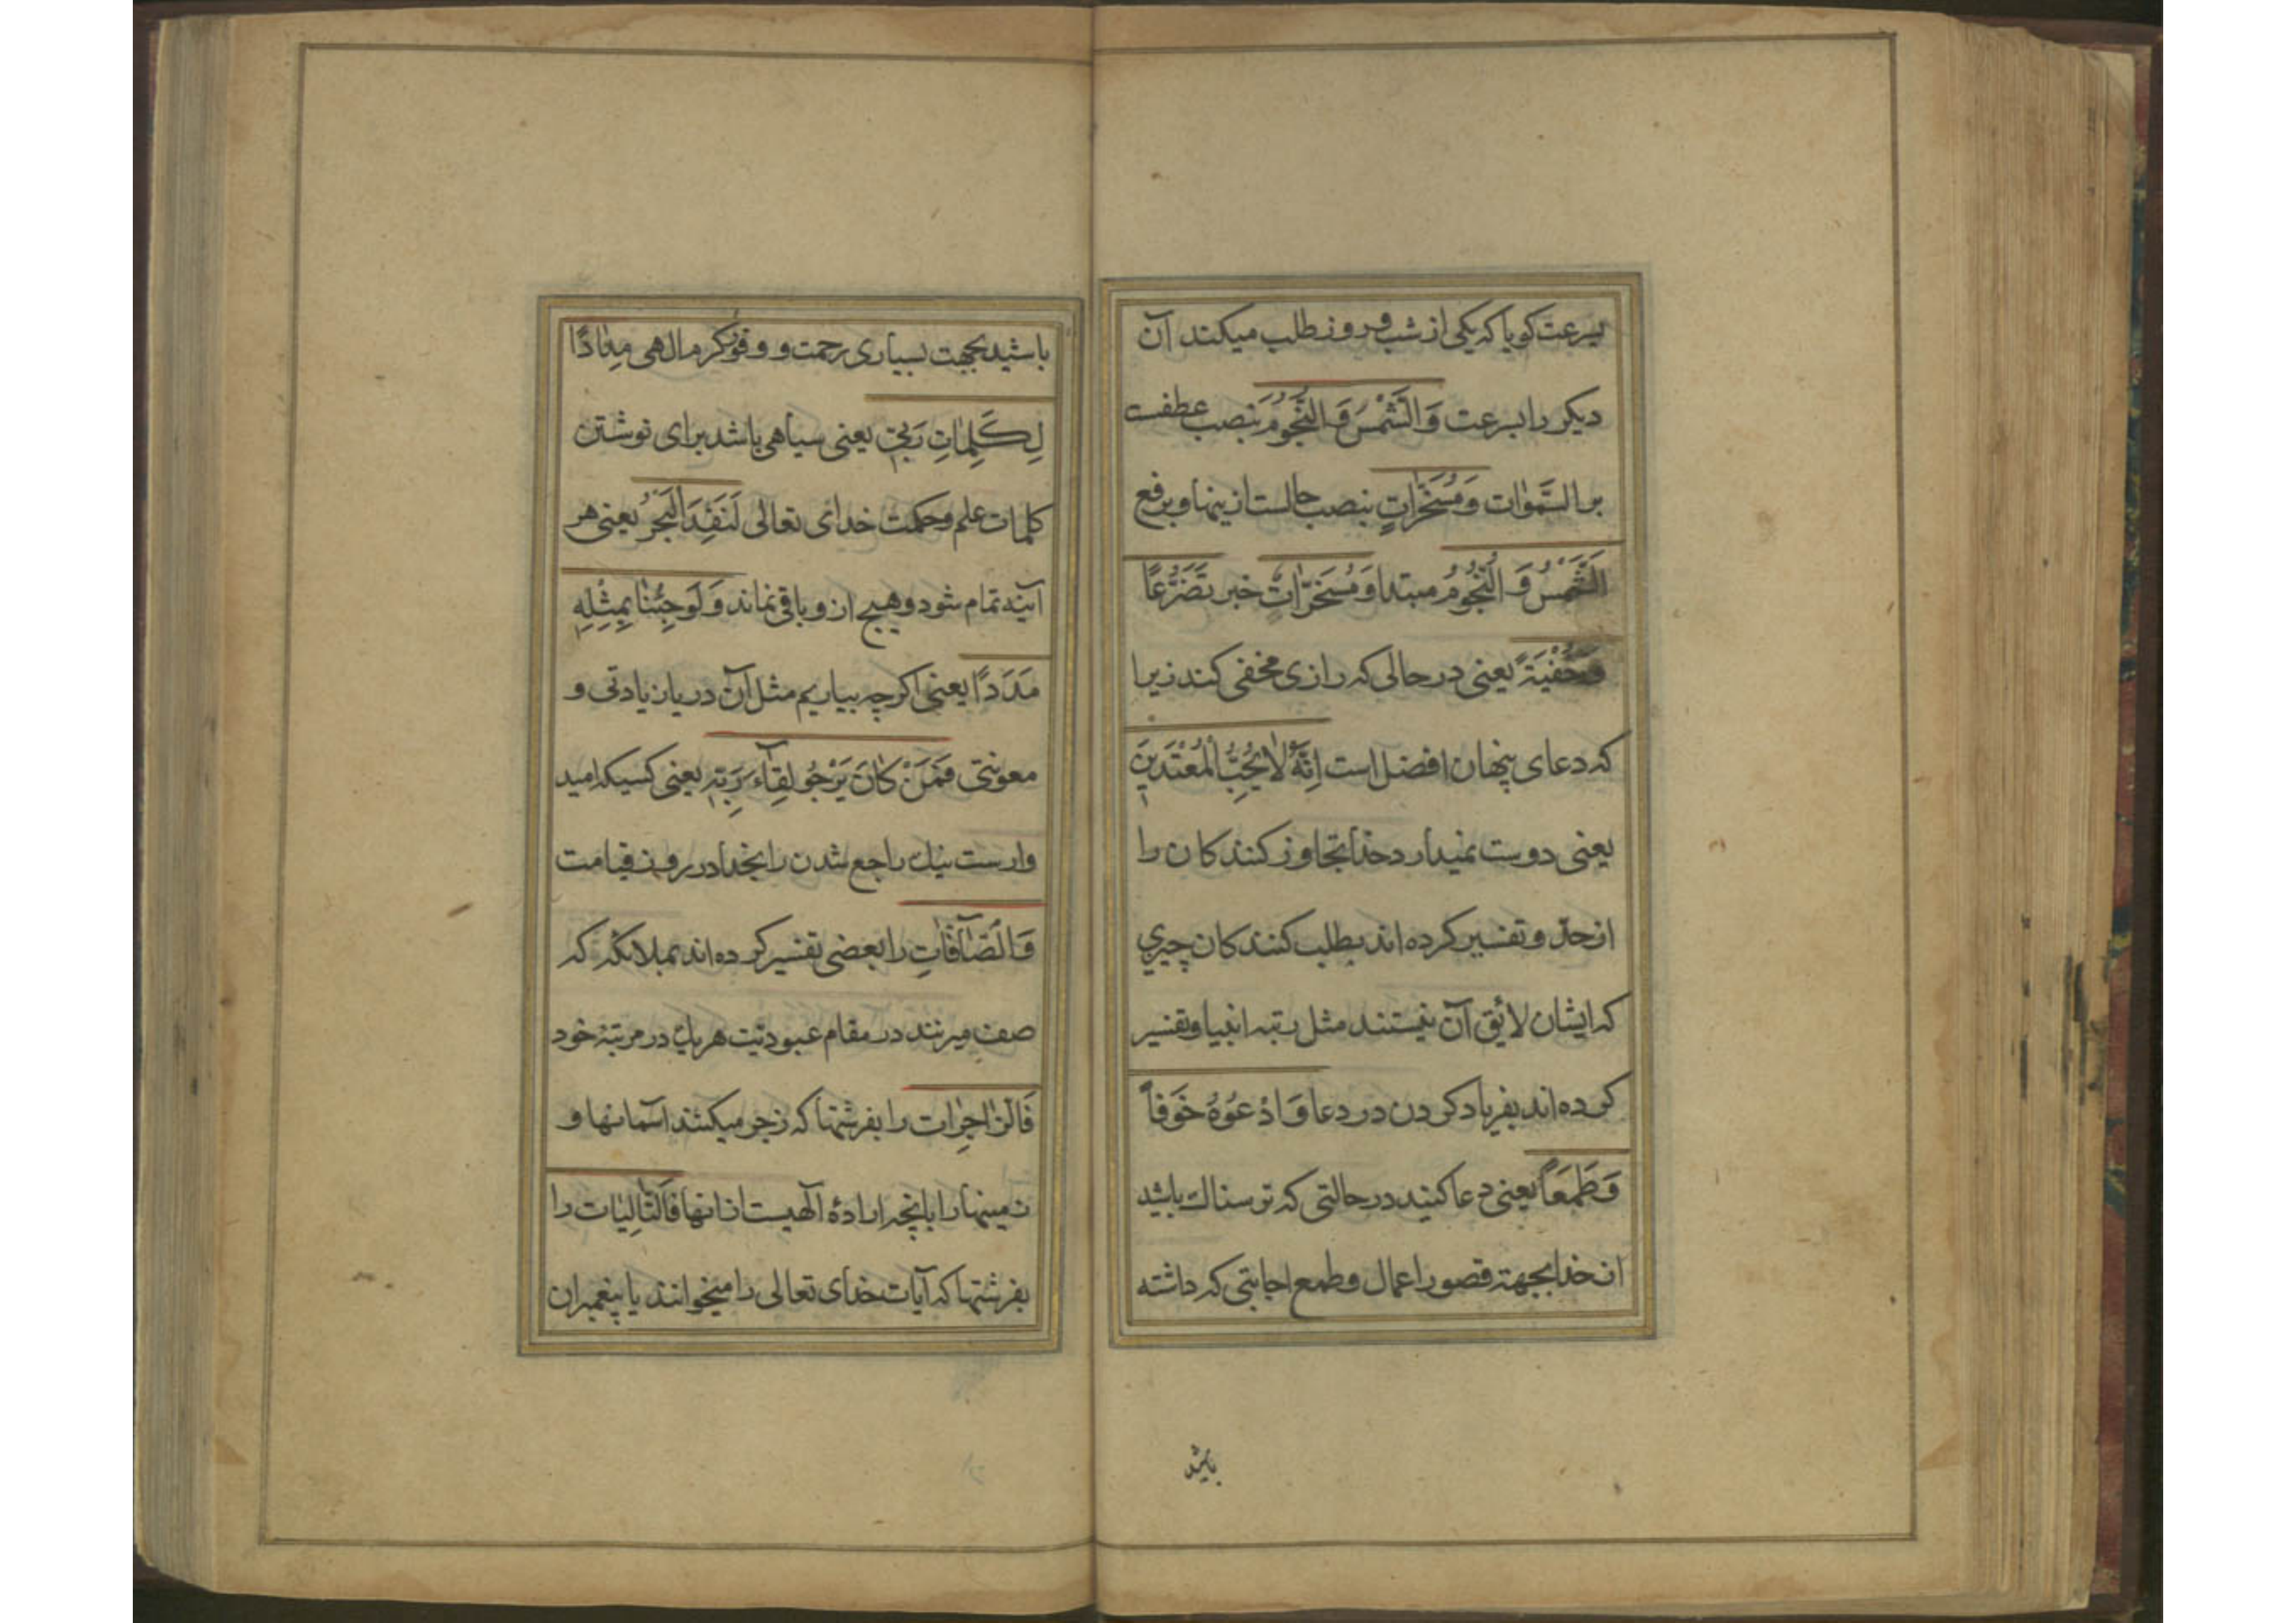 بسرعت کویا که یکی از شب و روز طلب میکند آن
دیکر را بسرعت وَالشَّمْسَ وَالنُّجُومَ بنصب عطفست
بر السَّمٰوات وَمُسَخَّرَاتٍ بنصب حالست ازینها و برفع
الشَّمْسُ وَالنُّجُومُ مبتدا وَمُسَخَّرَاتٌ خبر تَضَرُّعًا
وَخُفْيَةً یعنی در حالی که رازی مخفی کند زیرا
که دعای پنهان افضل است اِنَّهُ لَا يُحِبُّ الْمُعْتَدِينَ
یعنی دوست نمیدارد خدا تجاوز کنندکان را
از حدّ و تفسیر کرده اند بطلب کنندکان چیزی
که ایشان لائق آن نیستند مثل رتبه انبیا و تفسیر
کرده اند بفریاد کردن در دعا وَادْعُوهُ خَوْفاً
وَطَمَعاً یعنی دعا کنید در حالتی که ترسناک باشید
از خدا بجهة قصور اعمال و طمع اجابتی که داشته
باشید
باشید بجهت بسیاری رحمت و وفور کرم الهی مِدَادًا
لِكَلِمَاتِ رَبِّي یعنی سیاهی باشد برای نوشتن
کلمات علم و حکمت خدای تعالی لَنَفِدَ الْبَحْرُ یعنی هر
آینه تمام شود و هیچ ازو باقی نماند وَلَوْ جِئْنَا بِمِثْلِهِ
مَدَدًا یعنی اکرچه بیاریم مثل آن دریا زیادتی و
معونتی فَمَنْ كَانَ يَرْجُو لِقَاءَ رَبِّهِ یعنی کسیکه امید
وارست نیک راجع شدن را بخدا در روز قیامت
وَالصَّافَّاتِ را بعضی تفسیر کرده اند بملائکه که
صف میزنند در مقام عبودیّت هر یک در مرتبهٔ خود
فَالزَّاجِرَات را بفرشتها که زجر میکنند آسمانها و
زمینها را بانچه ارادهٔ آلهیست ازانها فَالتَّالِيَات را
بفرشتها که آیات خدای تعالی را میخوانند یا پیغمبران